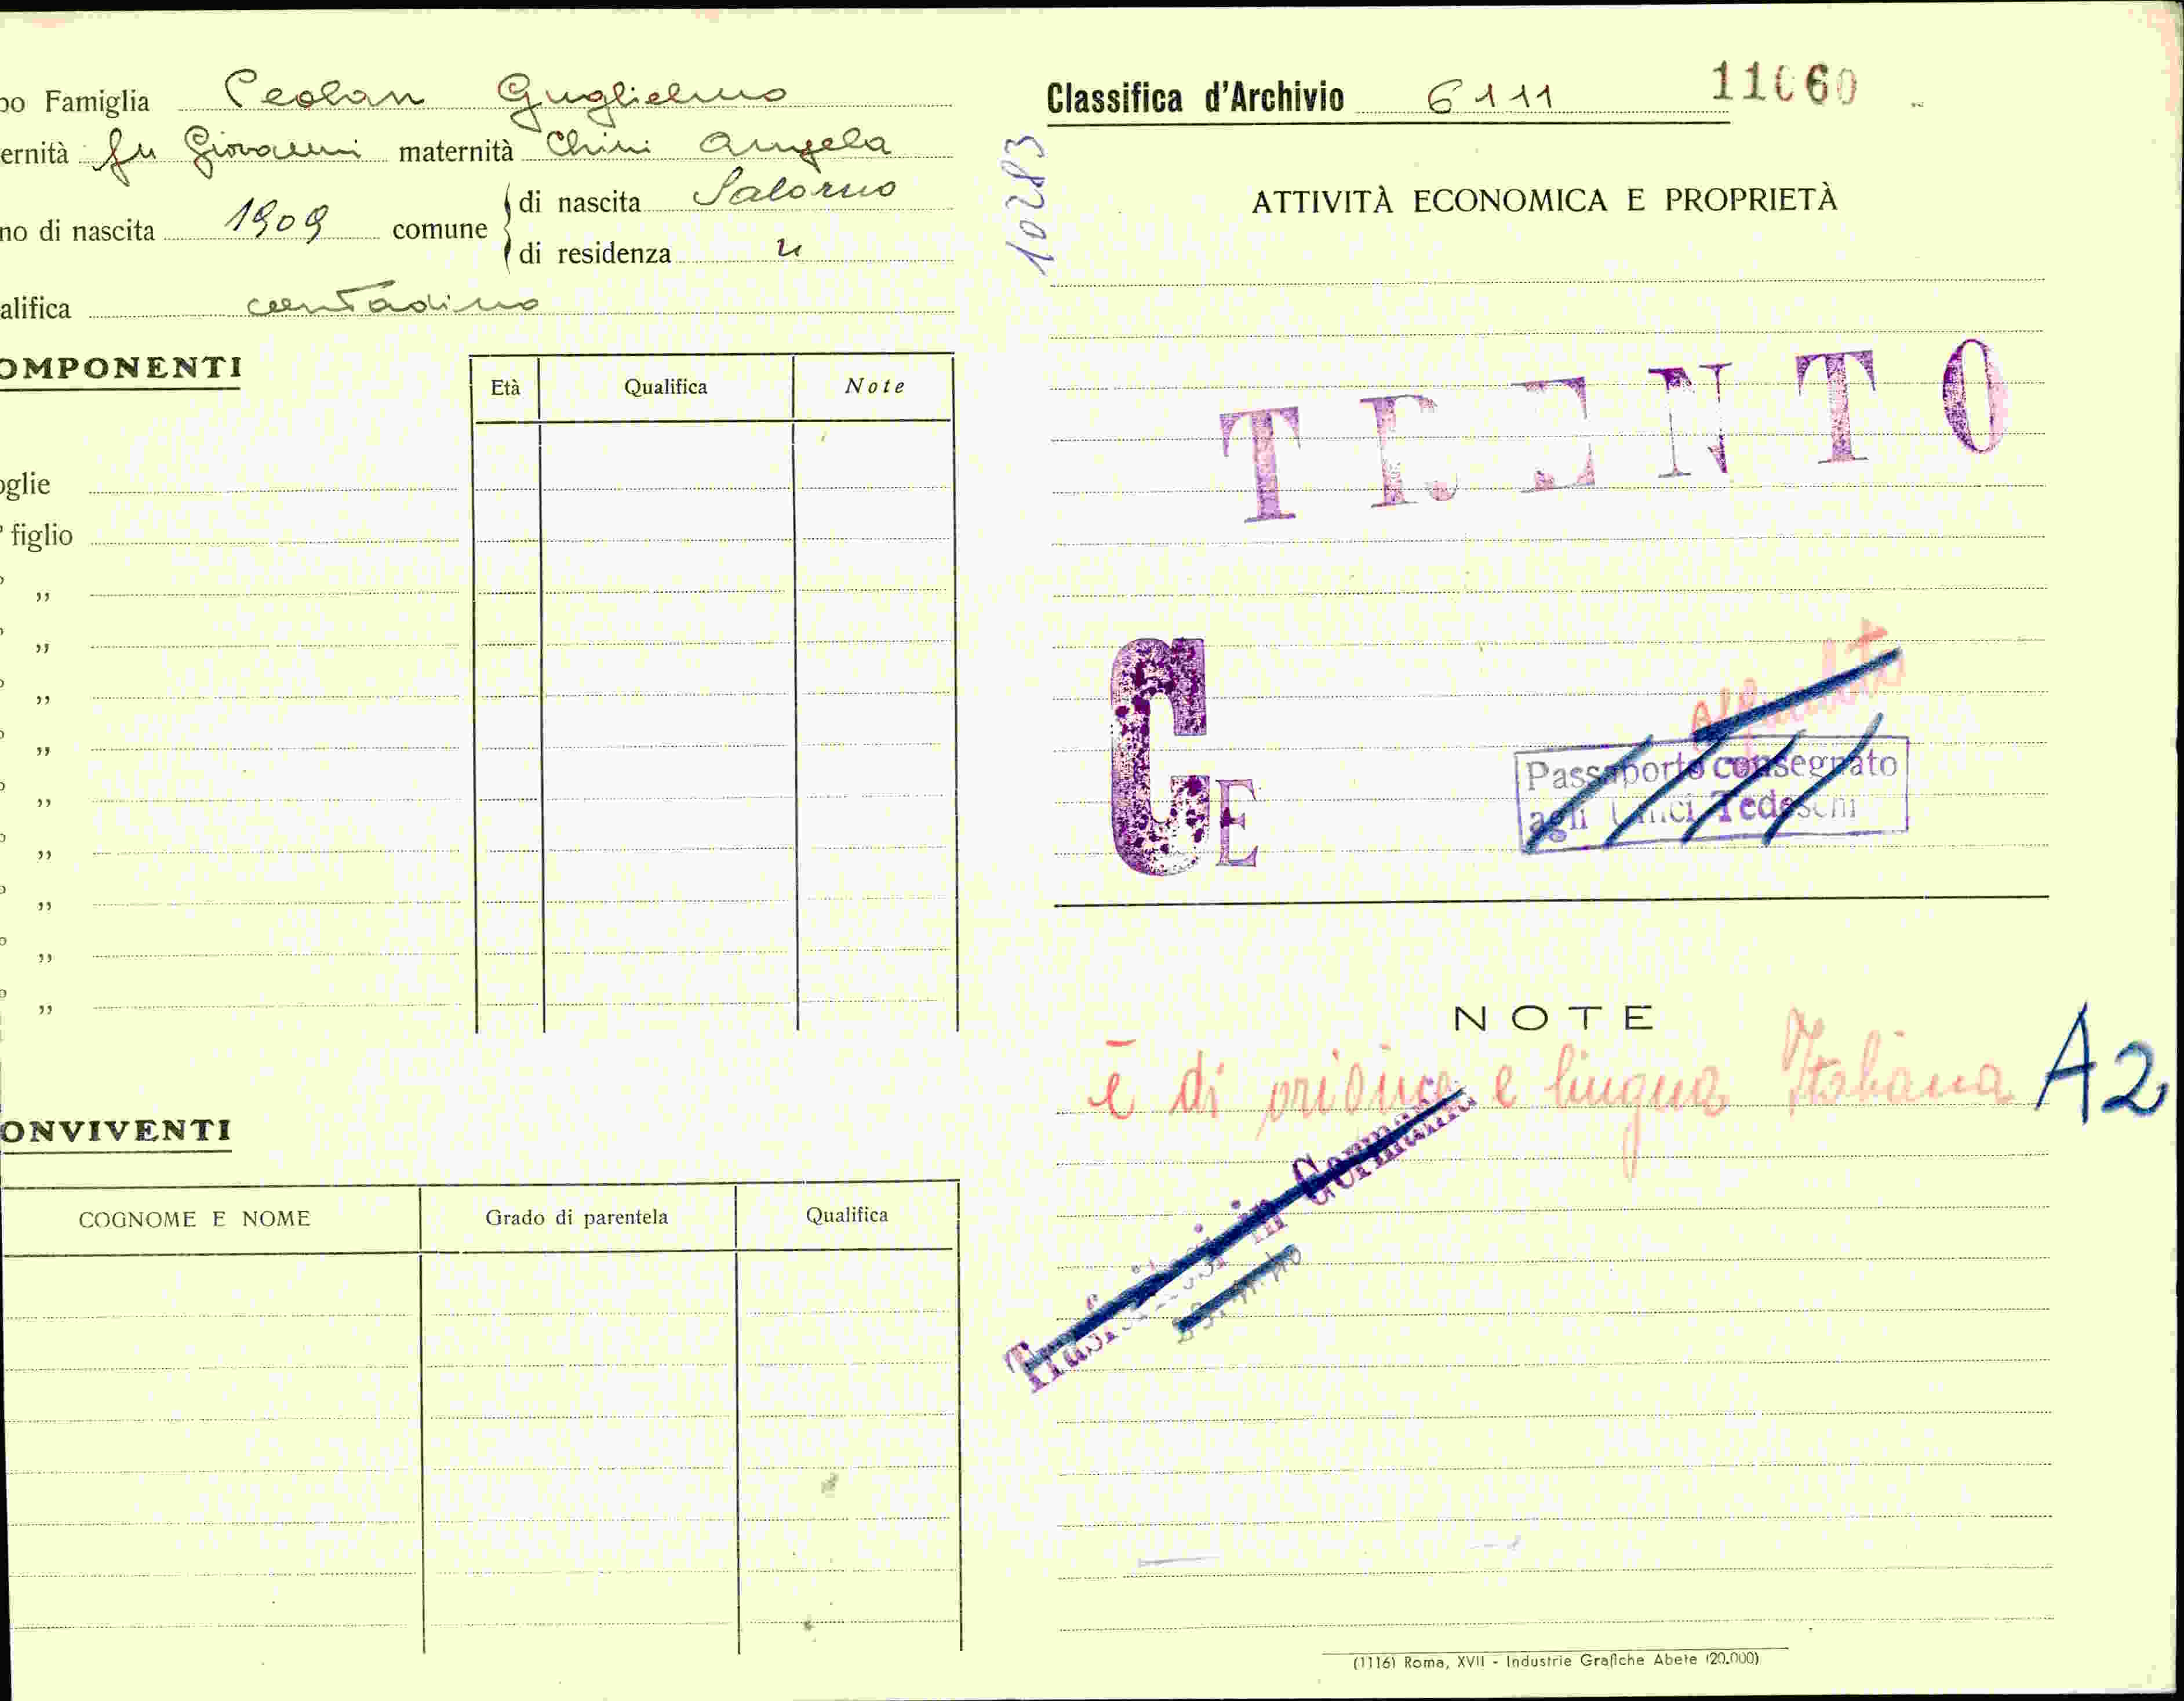 po Famiglia Ceolan Guglielmo
ernità fu Giovanni maternità Chini Angela
no di nascita 1909 comune di nascita Salorno
di residenza "
alifica contadino
OMPONENTI
Età Qualifica Note
oglie
° figlio
° „
° „
° „
° „
° „
° „
° „
° „
° „
ONVIVENTI
COGNOME E NOME Grado di parentela Qualifica
Classifica d'Archivio 6111 11060
100283
ATTIVITÀ ECONOMICA E PROPRIETÀ
TRENTO
CE
Passaporto consegnato
agli Uffici Tedeschi
NOTE
è di origine e lingua Italiana A2
Trasferitosi in Germania
(1116) Roma, XVII - Industrie Grafiche Abete (20.000)